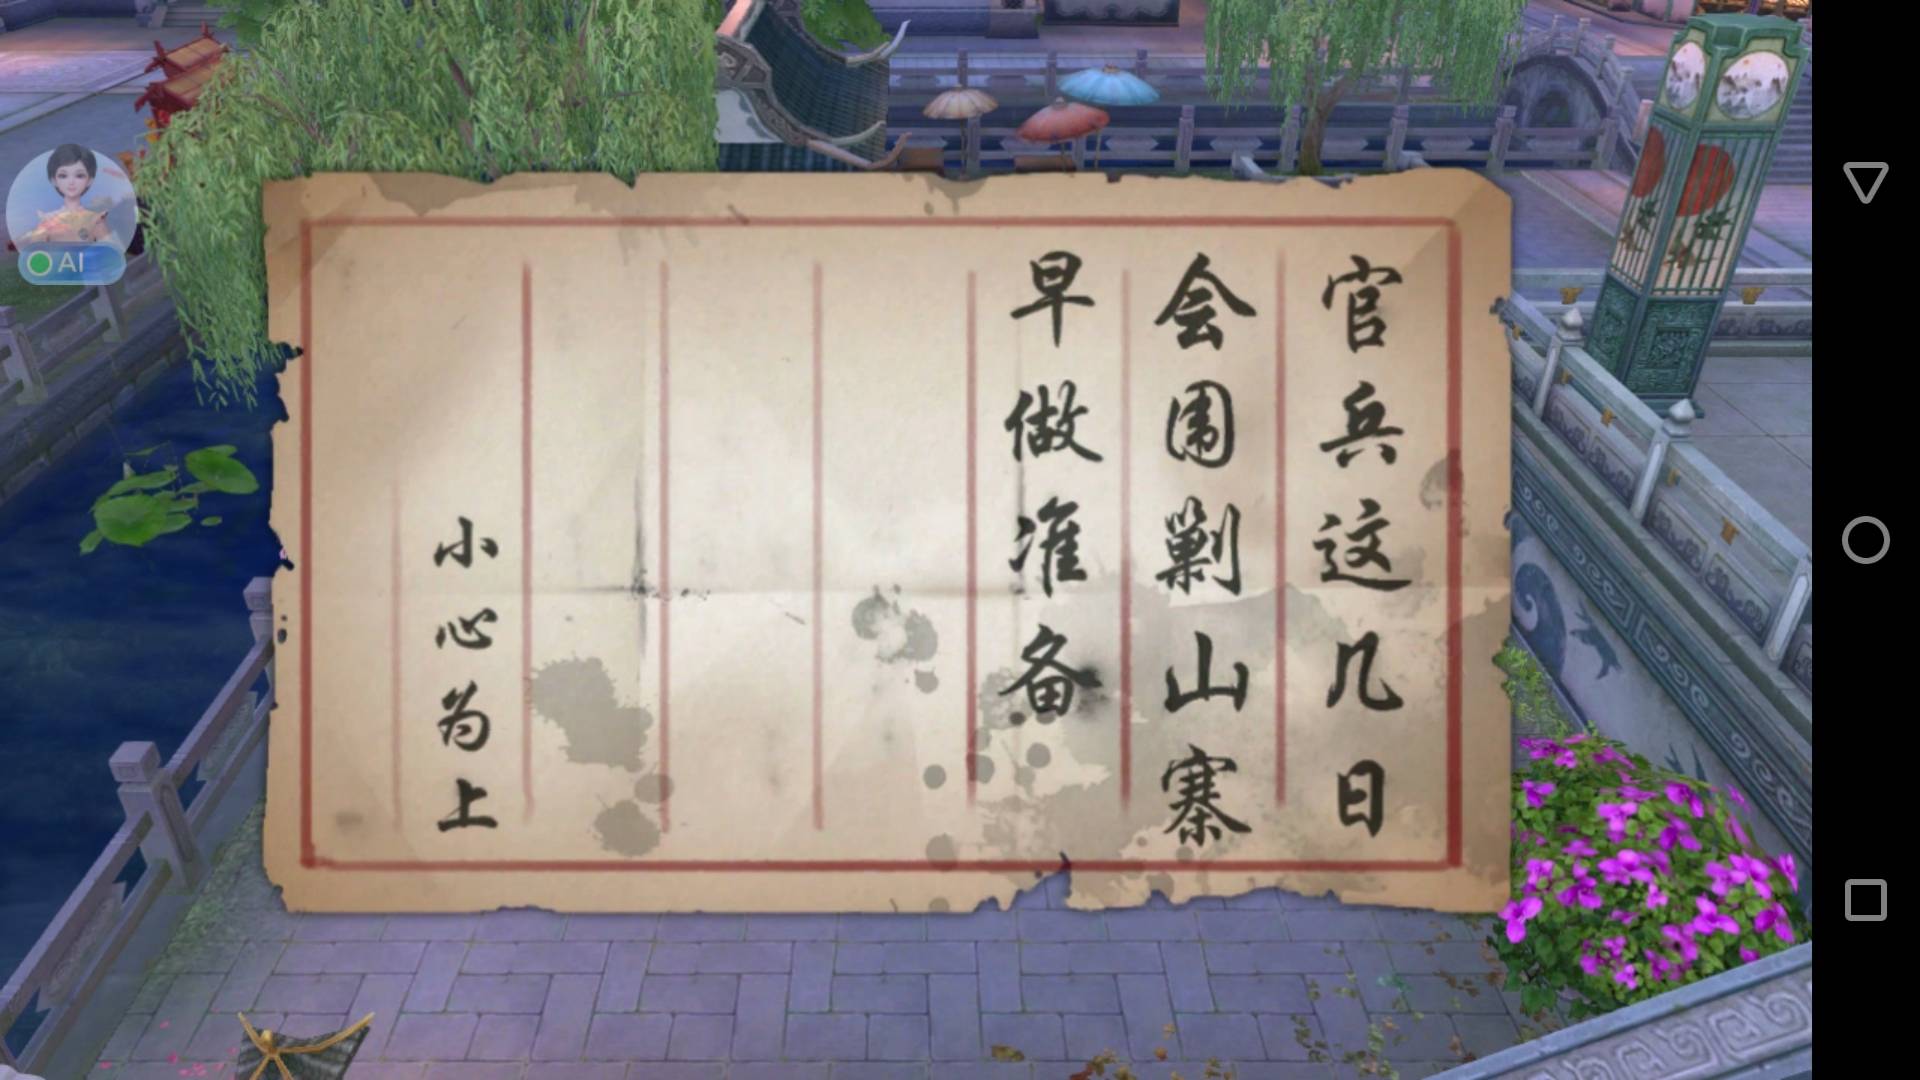 官兵这几日
会围剿山寨
早做准备
小心为上
AI